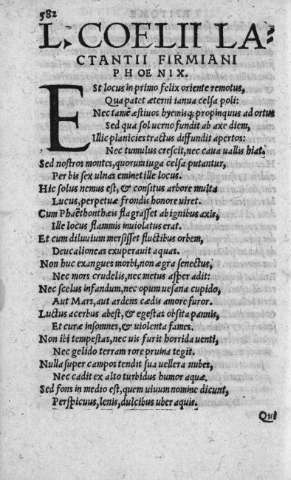 582
L. COELII LA-
CTANTII FIRMIANI
PHOENIX.
Est locus in primo felix oriente remotus,
Qua patet æterni ianua celsa poli:
Nec tamē æstiuos hyemisq; propinquus ad ortus
Sed qua sol uerno fundit ab axe diem,
Illic planicies tractus diffundit apertos:
Nec tumulus crescit, nec caua uallis hiat.
Sed nostros montes, quorum iuga celsa putantur,
Per bis sex ulnas eminet ille locus.
Hic solus nemus est, & consitus arbore multa
Lucus, perpetuæ frondis honore uiret.
Cum Phaethonthæis flagrasset ab ignibus axis,
Ille locus flammis inuiolatus erat.
Et cum diluuium mersisset fluctibus orbem,
Deucalioneas exuperauit aquas.
Non huc exangues morbi, non ægra senectus,
Nec mors crudelis, nec metus asper adit:
Nec scelus infandum, nec opum uesana cupido,
Aut Mars, aut ardens cædis amore furor.
Luctus acerbus abest, & egestas obsita pannis,
Et curæ insomnes, & uiolenta fames.
Non ibi tempestas, nec uis furit horrida uenti,
Nec gelido terram rore pruina tegit.
Nulla super campos tendit sua uellera nubes,
Nec cadit ex alto turbidus humor aquæ.
Sed fons in medio est, quem uiuum nomine dicunt,
Perspicuus, lenis, dulcibus uber aquis.
Qui